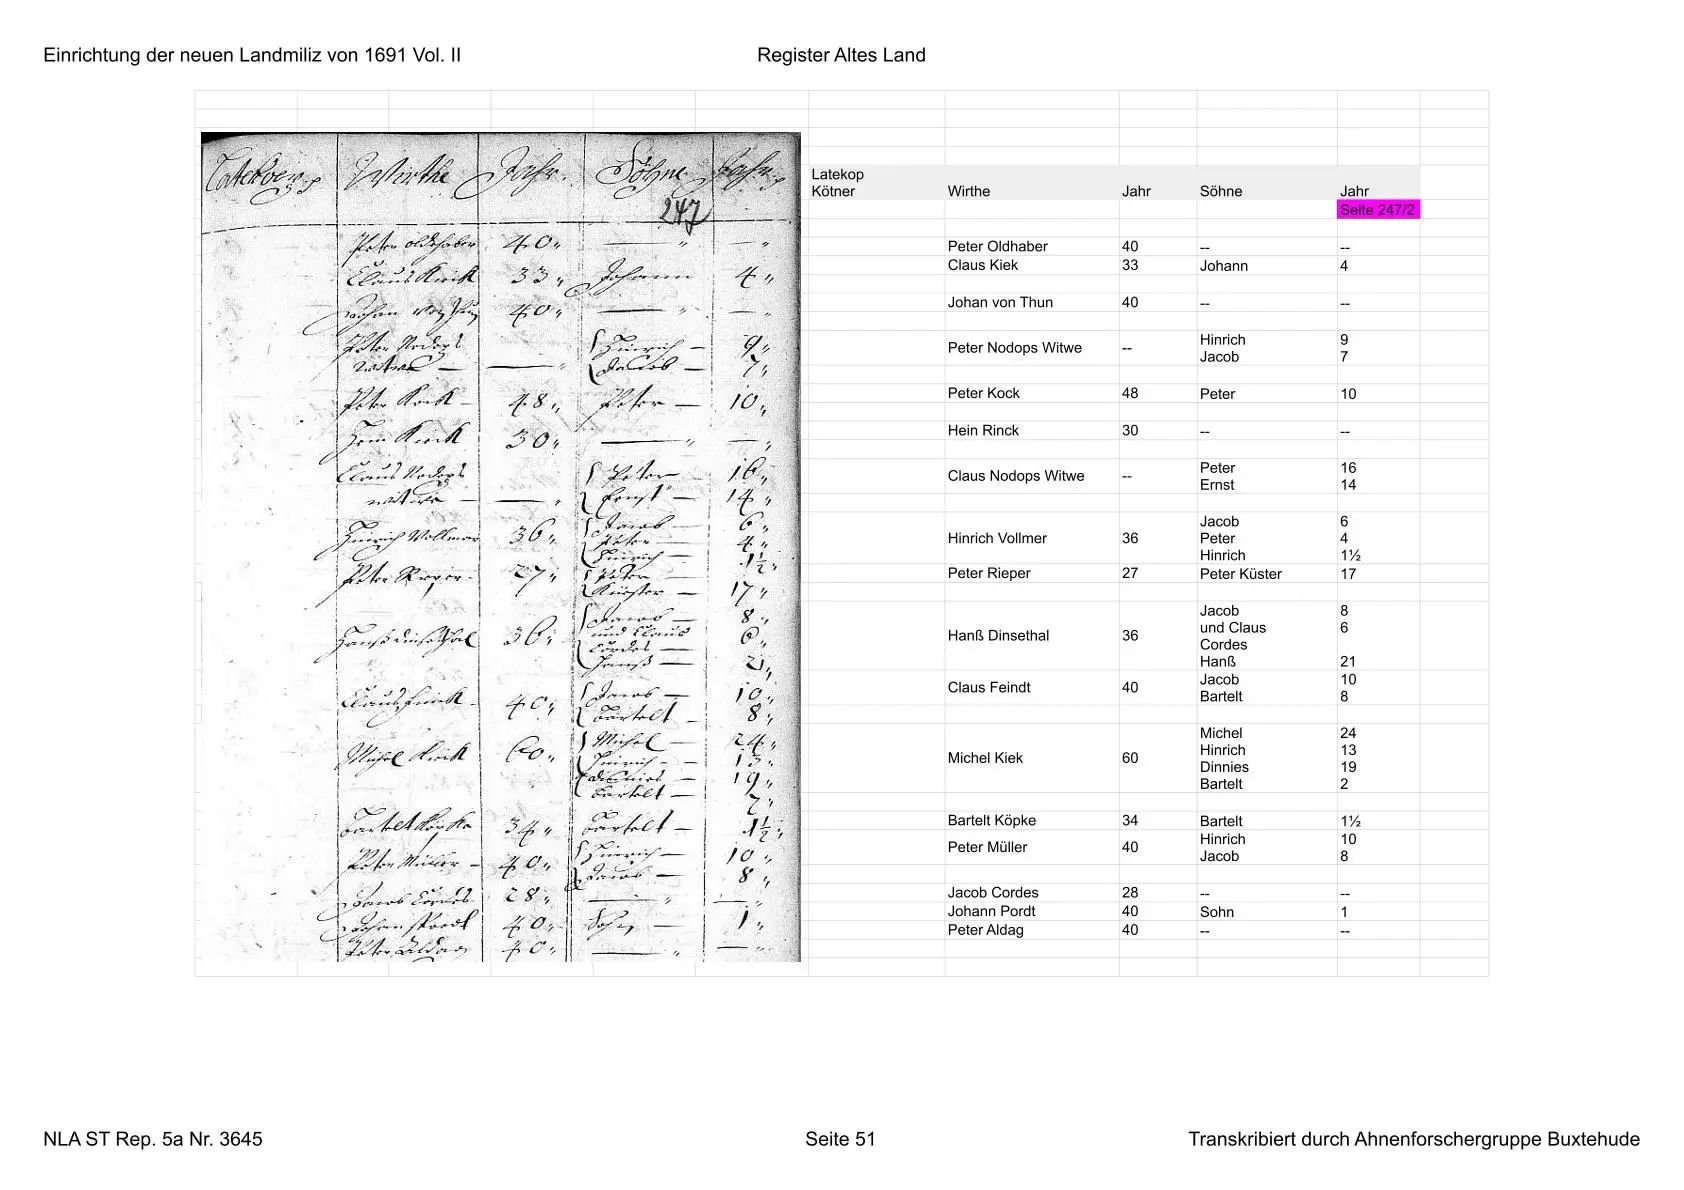 Einrichtung der neuen Landmiliz von 1691 Vol. II
Register Altes Land
Wirthe Jahr. Söhne Jahr.
247
Peter oldehaber 40 — —
Claus Kieck 33 Johann 4
Johan von Thun 40 — —
Peter Nodops { Hinrich — 9
witwe — — { Jacob — 7
Peter Kock — 48 Peter — 10
Hein 30 — —
Claus Nodops { Peter — 16
witwe — — { Ernst — 14
Hinrich Vollmer 36 { Jacob — 6
Peter — 4
Hinrich — 1½
Peter Rieper 27 { Peter
Küster — 17
Hanß dinsethal 36 { Jacob — 8
und Claus 6
Cordes —
Hanß — 21
Claus 40 { Jacob — 10
Bartelt — 8
Michel Kieck 60 { Michel — 24
Hinrich — 13
Dinnies — 19
Bartelt — 2
Bartelt Köpke 34 Bartelt — 1½
Peter Müller — 40 { Hinrich — 10
Jacob — 8
Jacob Cordes 28 — —
Johan 40 Sohn — 1
Peter Aldag 40 — —
Latekop
Kötner Wirthe Jahr Söhne Jahr
Seite 247/2
Peter Oldhaber 40 -- --
Claus Kiek 33 Johann 4
Johan von Thun 40 -- --
Peter Nodops Witwe -- Hinrich 9
Jacob 7
Peter Kock 48 Peter 10
Hein Rinck 30 -- --
Claus Nodops Witwe -- Peter 16
Ernst 14
Hinrich Vollmer 36 Jacob 6
Peter 4
Hinrich 1½
Peter Rieper 27 Peter Küster 17
Hanß Dinsethal 36 Jacob 8
und Claus 6
Cordes
Hanß 21
Claus Feindt 40 Jacob 10
Bartelt 8
Michel Kiek 60 Michel 24
Hinrich 13
Dinnies 19
Bartelt 2
Bartelt Köpke 34 Bartelt 1½
Peter Müller 40 Hinrich 10
Jacob 8
Jacob Cordes 28 -- --
Johann Pordt 40 Sohn 1
Peter Aldag 40 -- --
NLA ST Rep. 5a Nr. 3645
Seite 51
Transkribiert durch Ahnenforschergruppe Buxtehude